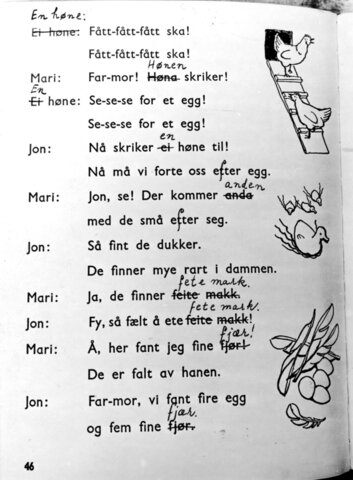 En høne:
Ei høne: Fått-fått-fått ska!
Fått-fått-fått ska!
Hønen
Mari: Far-mor! Høna skriker!
En
Ei høne: Se-se-se for et egg!
Se-se-se for et egg!
en
Jon: Nå skriker ei høne til!
Nå må vi forte oss efter egg.
anden
Mari: Jon, se! Der kommer anda
med de små efter seg.
Jon: Så fint de dukker.
De finner mye rart i dammen.
fete mark.
Mari: Ja, de finner feite makk.
fete mark.
Jon: Fy, så fælt å ete feite makk!
fjær!
Mari: Å, her fant jeg fine fjør!
De er falt av hanen.
Jon: Far-mor, vi fant fire egg
fjær.
og fem fine fjør.
46